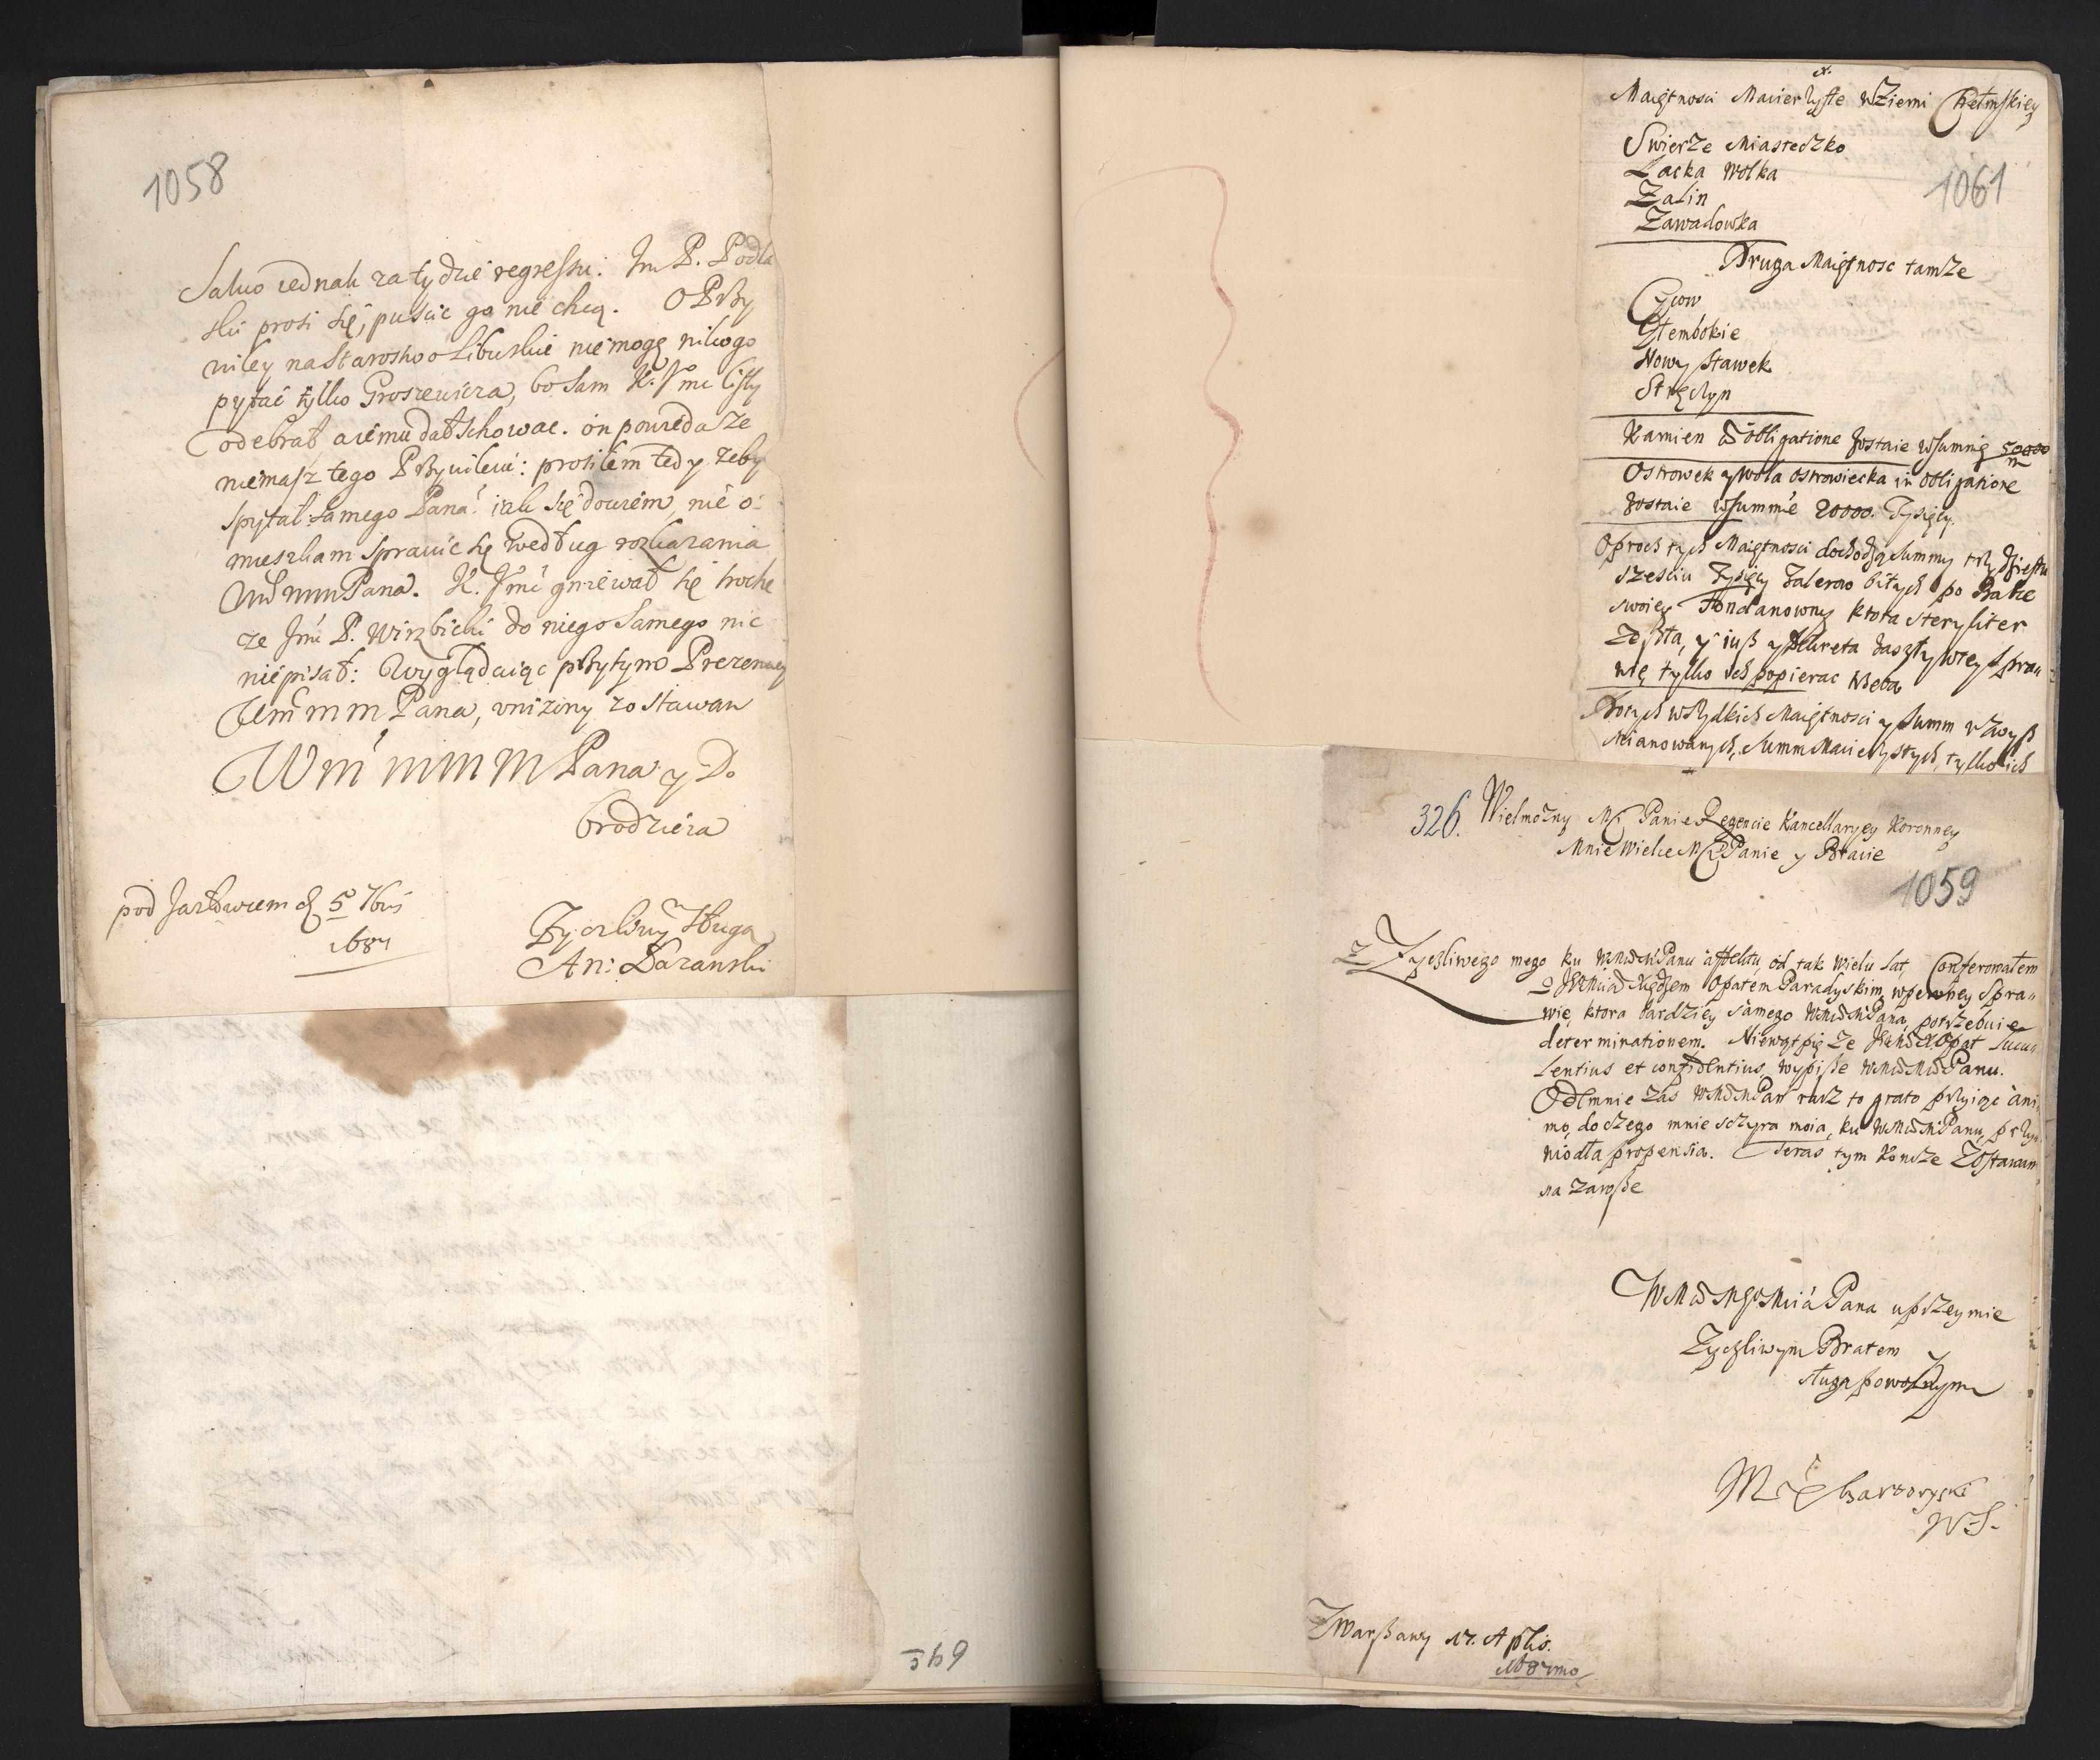 1058
Salvo iednak za tydzie regressu. Im P. Podla
ski prosi się, puscic go nie chcą. O Przy
wiley na Starostwo Libuskie nie mogę nikogo
pytac tylko Groszewicza, bo sam K. Jmc listy
odebrał a iemu dał schowac. on powieda ze
niemasz tego Przywileiu: prosiłem tedy zeby
spytał samego Pana: iak się dowiem, nie o:
mieszkam sprawic się według rozkazania
Pana. K. Jmc gniewał się troche
ze Jmc P. Wirzbicki do niego samego nic
niepisał: Wyglądaiąc przytym Prezency
Pana, uniziny zostawam
Wm mmm Pana y Do
brodzieia
pod Jazłowcem d 5 7bris
1684
Zyczliwy Sługa
An: Łazanski
369
x.
Maiętnosci Macierzyste w Ziemi Chełmskiey
1061
Swierze Miasteczko
Lacka Wolka
Zalin
Zawadowka
Druga Maiętnosc tamze
Cycow
Głembokie
Nowy stawek
Stręczyn
Kamien obligatione zostaie w summię 50000
m
Ostrowek y Wola ostrowiecka in obligatione
zostaie w summie 20000. Tysięcy.
Oproch tych Maiętnosci dochodzą summy trzydziestu
szesciu Tysięcy Talerow bitych po Babce
swoiey Fondanowney ktora steryliter
zeszła, y iusz y Dekreta zaszły w tey spra„
wię tylko ich popierac trzeba
Do tych wszytkich Maiętnosci y summ wzwysz
Mianowanych, Summ Macierzystych, tylko ich
326. Wielmozny Mci Panie Regencie Kancellaryey Koronney
Mnie Wielce Mci Panie y Bracie
1059
Z Zyczliwego mego ku Panu affektu, od tak wielu lat, Conferowałem
z Xiędzem Opatem Paradyskim, w pewney spra„
wie, ktora bardziey samego Pana, potrzebuie
determinationem. Niewątpię ze Opat lucu„
lentius et confidentius, wypisze Panu.
Odemnie zas Pan racz to grato przyiąc ani„
mo, do czego mnie sczyra moia, ku Panu, przy„
wiodła propensia. Teras tym koncze Zostawam
na zawsze
Pana uprzeymie
Zyczliwym Bratem
sługa powolnym
M X Czartoryski
W S.
Z Warszawy 17. Aplis.